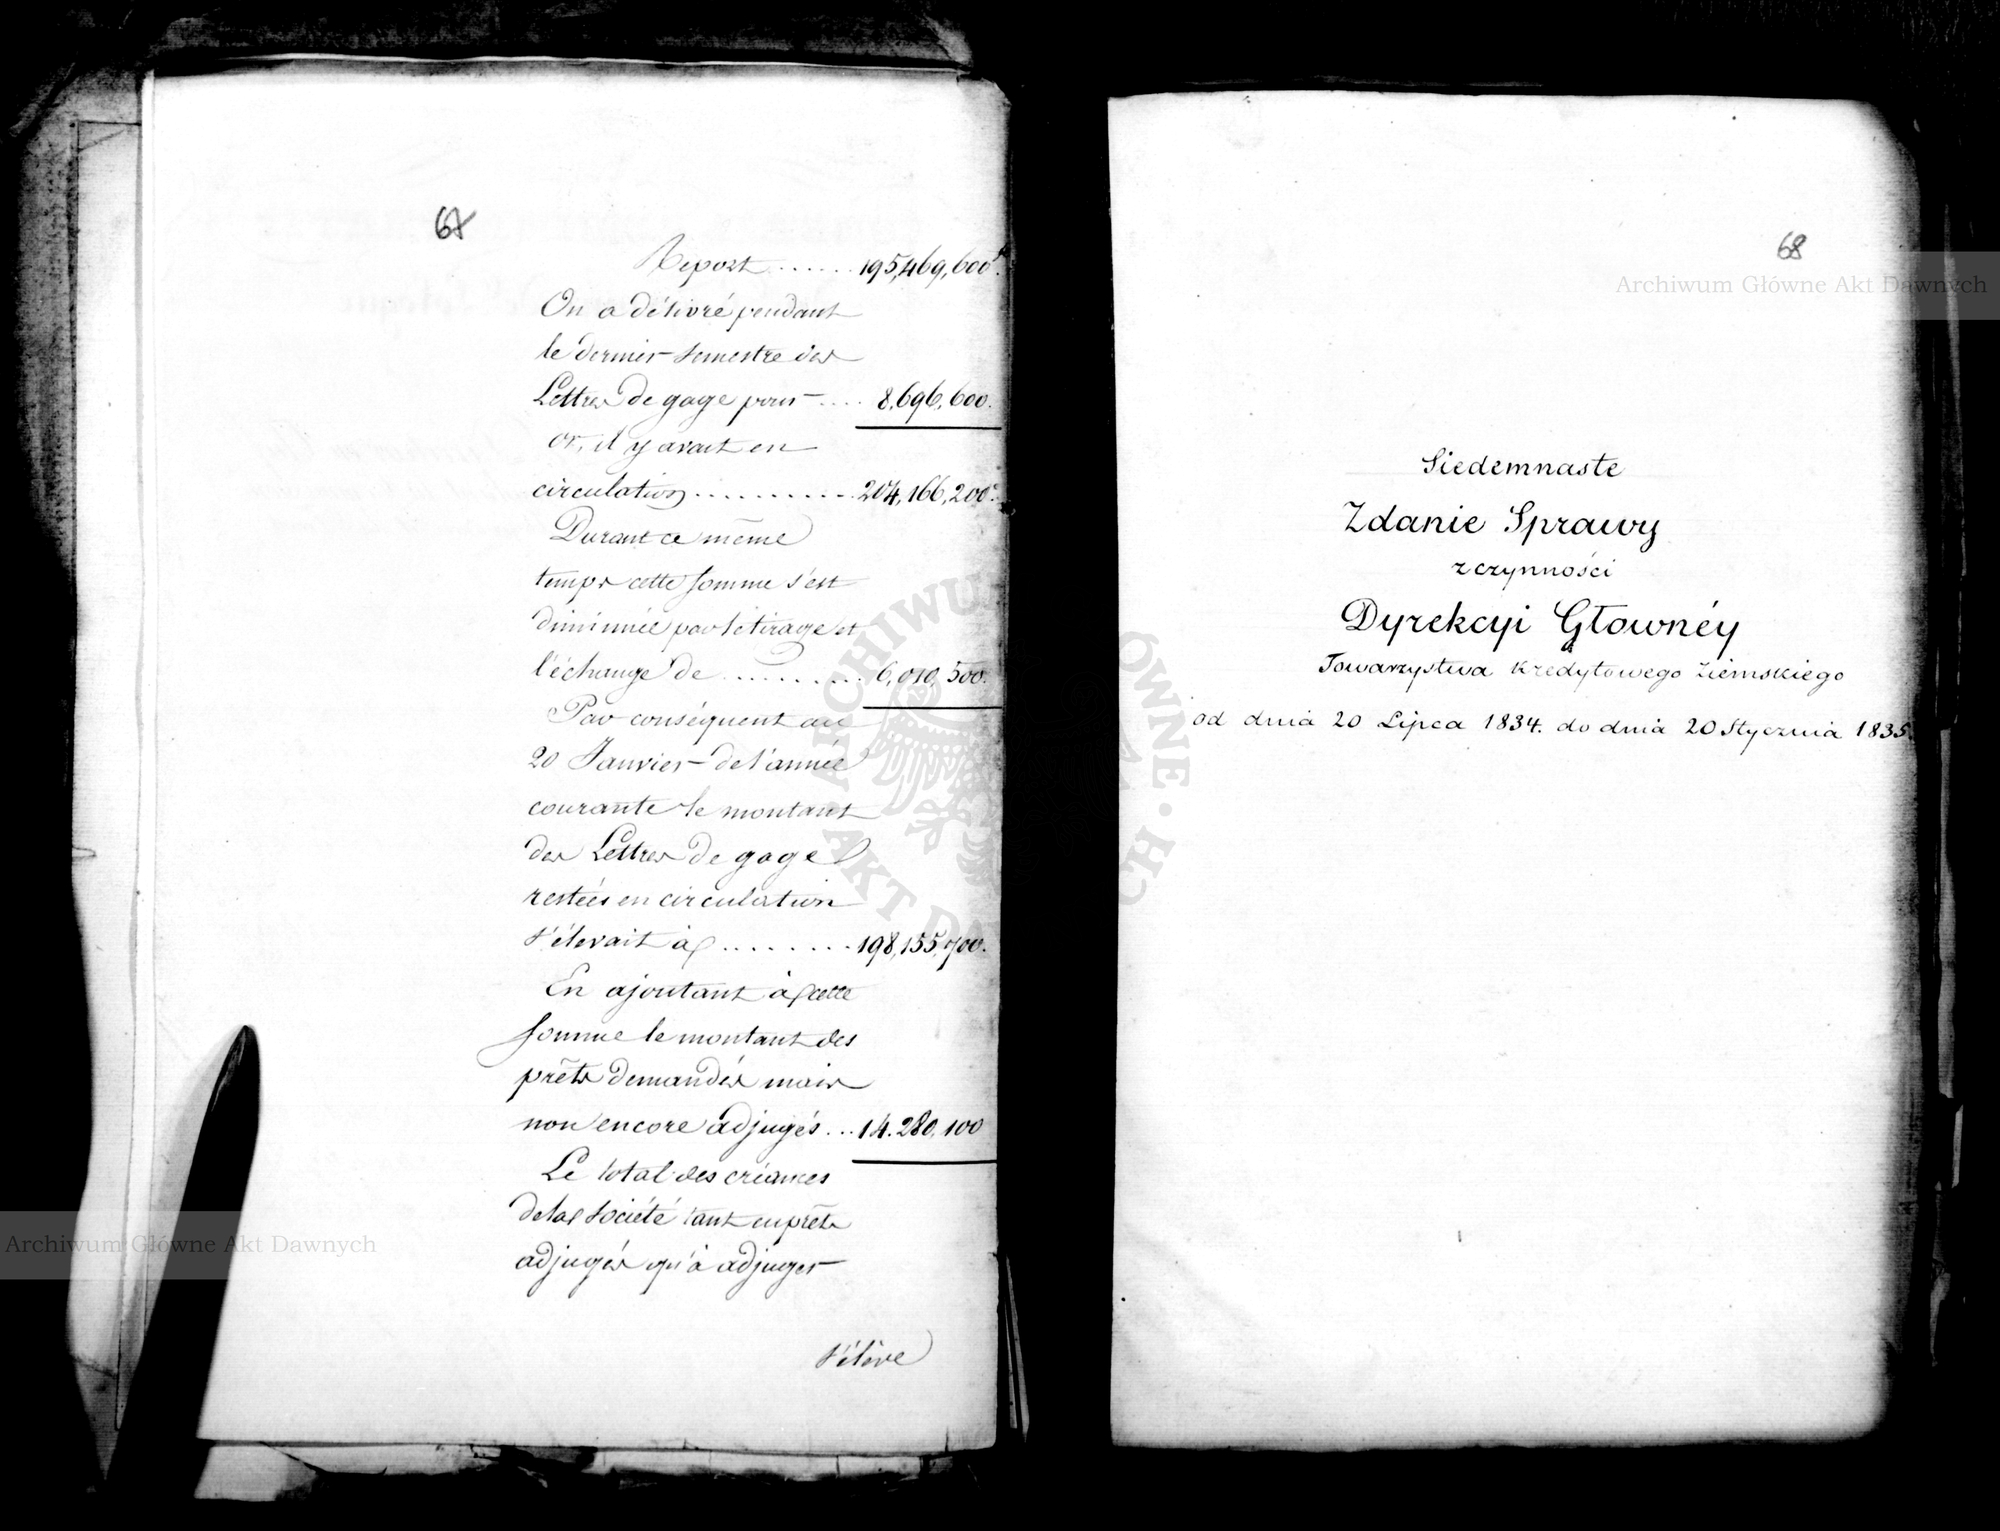 67
Report ...... 195,469,600 f.
On a délivré pendant
le dernier semestre des
Lettres de gage pour .... 8,696,600.
or, il y avait en
circulation .......... 204,166,200.
Durant ce même
temps cette somme s'est
diminuée par le tirage et
l'échange de .......... 6,010,500.
Par conséquent au
20 Janvier de l'année
courante le montant
des Lettres de gage
restées en circulation
s'élevait à ........ 198,155,700.
En ajoutant à cette
somme le montant des
prêts demandés mais
non encore adjugés ... 14.280,100
Le total des créances
de la Société tant en prêts
adjugés qu'à adjuger
s'élève
68
Siedemnaste
Zdanie Sprawy
z czynności
Dyrekcyi Głownéy
Towarzystwa Kredytowego Ziemskiego
od dnia 20 Lipca 1834. do dnia 20 Stycznia 1835.
Archiwum Główne Akt Dawnych
Archiwum Główne Akt Dawnych